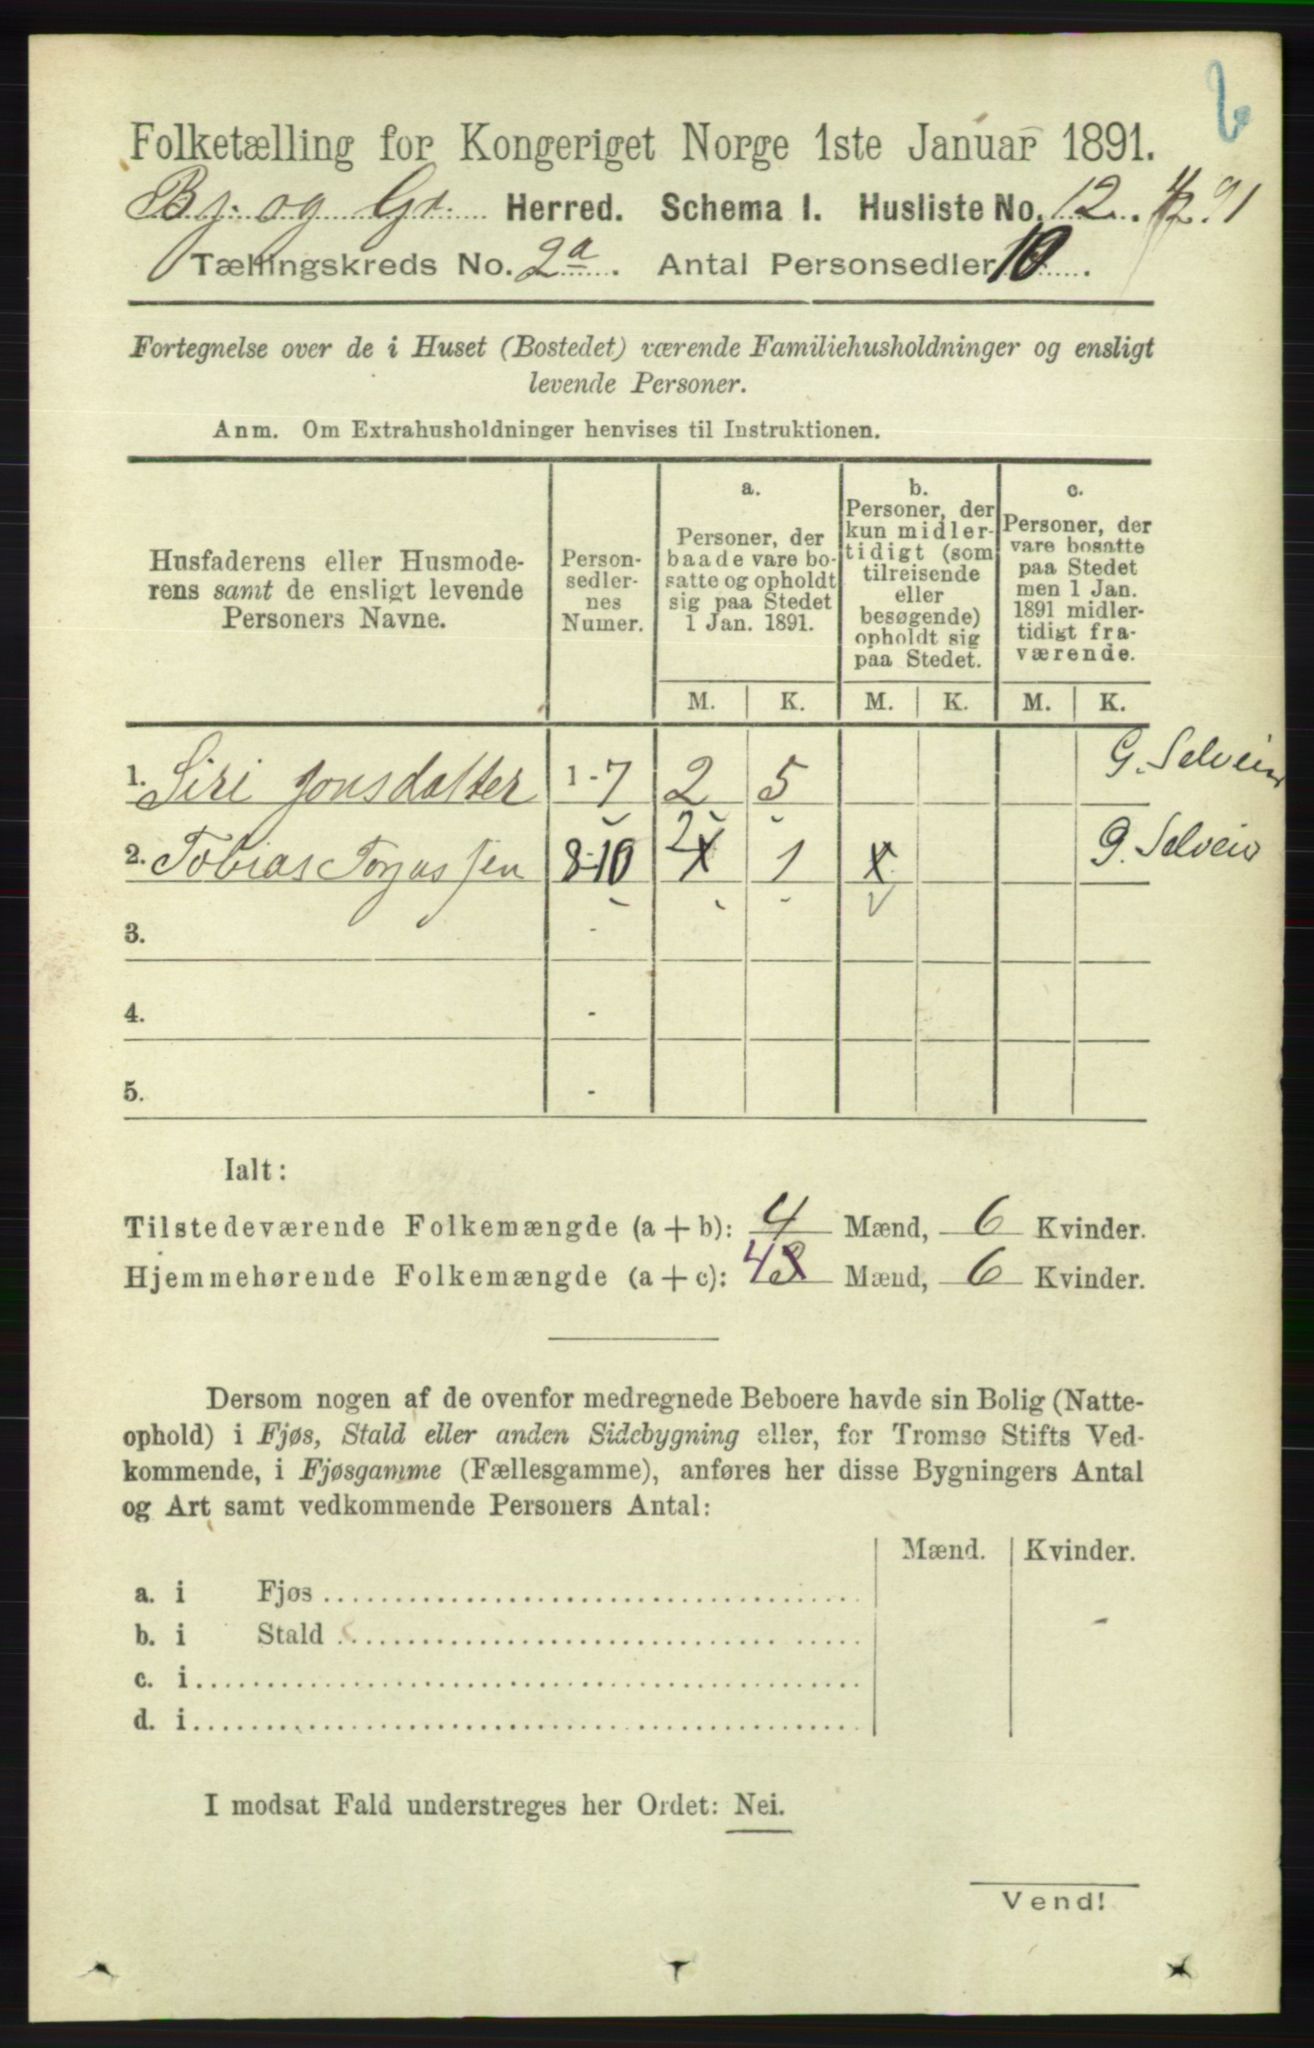 Folketælling for Kongeriget Norge 1ste Januar 1891.
Bj. og Gr. Herred. Schema I. Husliste No. 12. 4/2 91
Tællingskreds No. 2a. Antal Personsedler 10.
Fortegnelse over de i Huset (Bostedet) værende Familiehusholdninger og ensligt
levende Personer.
Anm. Om Extrahusholdninger henvises til Instruktionen.
Husfaderens eller Husmode-
rens samt de ensligt levende
Personers Navne.
Person-
sedler-
nes
Numer.
a.
Personer, der
baade vare bo-
satte og opholdt
sig paa Stedet
1 Jan. 1891.
b.
Personer, der
kun midler-
tidigt (som
tilreisende
eller
besøgende)
opholdt sig
paa Stedet.
c.
Personer, der
vare bosatte
paa Stedet
men 1 Jan.
1891 midler-
tidigt fra-
værende.
M. K. M. K. M. K.
1. Siri Jonsdatter 1-7 2 5 G. Selveier
2. Tobias Torjussen 8-10 2 1 x G. Selveier
3. -
4. -
5. -
Ialt:
Tilstedeværende Folkemængde (a + b): 4 Mænd, 6 Kvinder.
Hjemmehørende Folkemængde (a + c): 4 3 Mænd, 6 Kvinder.
Dersom nogen af de ovenfor medregnede Beboere havde sin Bolig (Natte-
ophold) i Fjøs, Stald eller anden Sidebygning eller, for Tromsø Stifts Ved-
kommende, i Fjøsgamme (Fællesgamme), anføres her disse Bygningers Antal
og Art samt vedkommende Personers Antal:
Mænd. Kvinder.
a. i Fjøs
b. i Stald
c. i
d. i
I modsat Fald understreges her Ordet: Nei.
Vend!